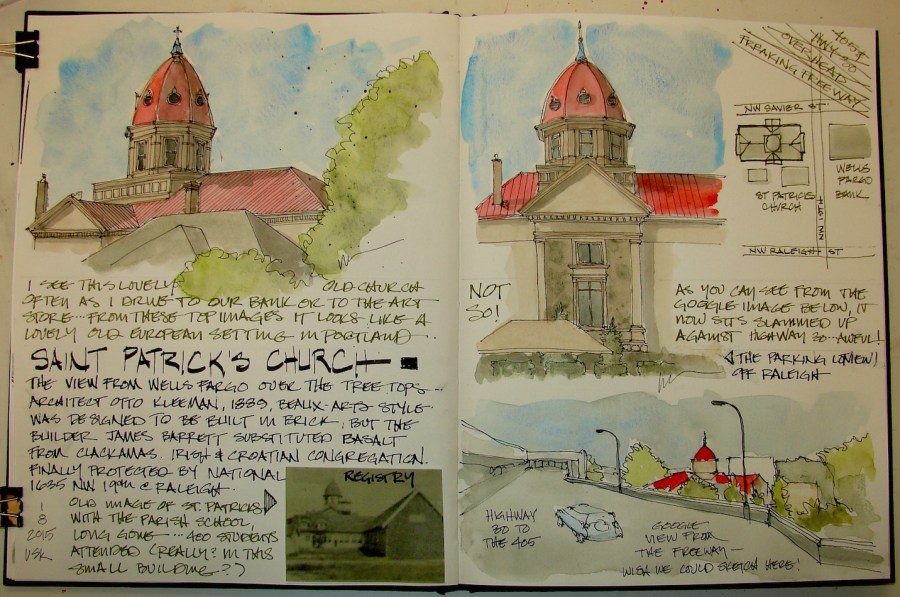 I SEE THIS LOVELY OLD CHURCH
OFTEN AS I DRIVE TO OUR BANK OR TO THE ART
STORE... FROM THESE TOP IMAGES IT LOOKS LIKE A
LOVELY OLD EUROPEAN SETTING IN PORTLAND
SAINT PATRICK'S CHURCH
THE VIEW FROM WELLS FARGO OVER THE TREE TOPS...
ARCHITECT OTTO KLEEMAN, 1889, BEAUX-ARTS STYLE
WAS DESIGNED TO BE BUILT IN BRICK, BUT THE
BUILDER JAMES BARRETT SUBSTITUTED BASALT
FROM CLACKAMAS. IRISH & CROATIAN CONGREGATION.
FINALLY PROTECTED BY NATIONAL
REGISTRY
1635 NW 19TH @ RALEIGH.
OLD IMAGE OF ST. PATRICKS
WITH THE PARISH SCHOOL,
LONG GONE ... 400 STUDENTS
ATTENDED (REALLY? IN THIS
SMALL BUILDING?)
1
8
2015
USK
NOT
SO!
405 &
HWY 30
OVERHEAD
FREAKING FREEWAY
NW SAVIER ST
ST PATRICKS
CHURCH
WELLS
FARGO
BANK
NW 19TH
NW RALEIGH ST
AS YOU CAN SEE FROM THE
GOOGLE IMAGE BELOW, IT
NOW SITS SLAMMED UP
AGAINST HIGHWAY 30--AWFUL!
THE PARKING LOT VIEW!
OFF RALEIGH
HIGHWAY
30 TO
THE 405
GOOGLE
VIEW FROM
THE FREEWAY—
WISH WE COULD SKETCH HERE!